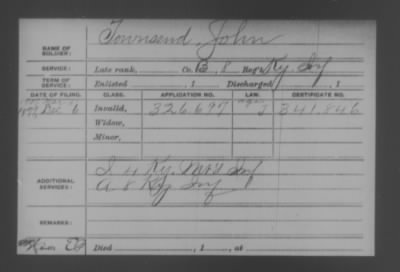 Townsend, John
NAME OF SOLDIER:
SERVICE: Late rank, Co. B, 8 Reg't Ky Inf
TERM OF SERVICE: Enlisted , 1 Discharged , 1
DATE OF FILING. CLASS. APPLICATION NO. LAW. CERTIFICATE NO.
Dec 6 Invalid, 326.697 J 341.846
Widow,
Minor,
ADDITIONAL SERVICES: I 4 Ky. Mt'd Inf
A 8 Ky Inf
REMARKS:
Died , 1 , at